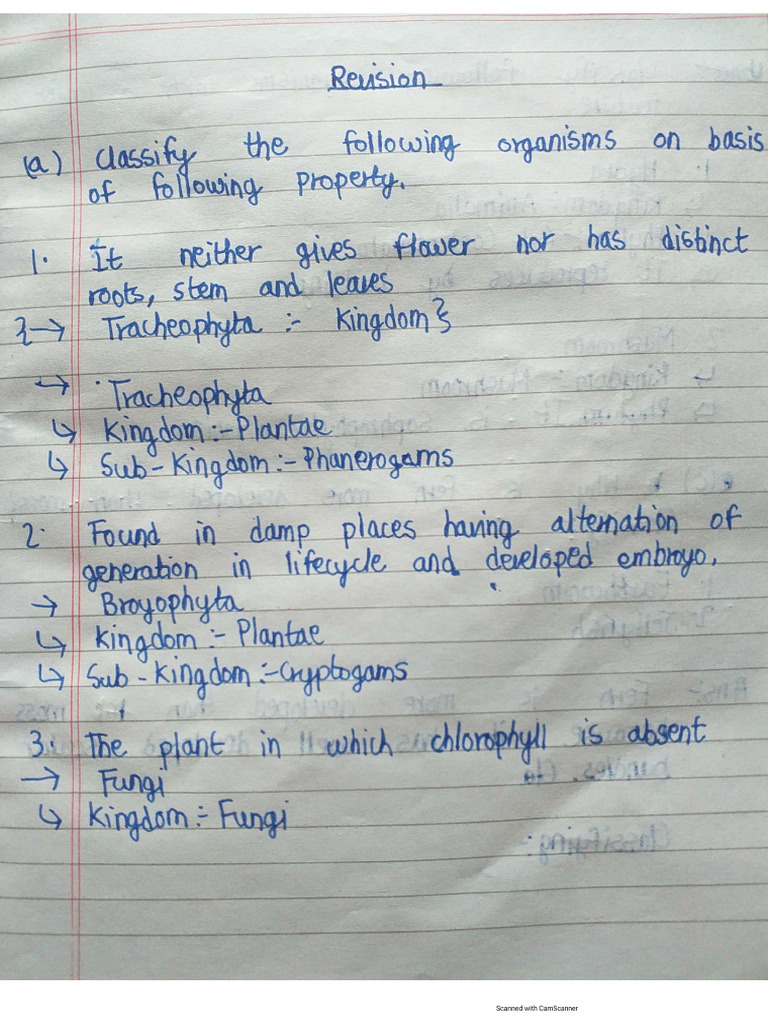 Revision
(a) Classify the following organisms on basis
of following property.
1. It neither gives flower nor has distinct
roots, stem and leaves
{→ Tracheophyta :- Kingdom}
→ Tracheophyta
↳ Kingdom :- Plantae
↳ Sub-Kingdom :- Phanerogams
2. Found in damp places having alternation of
generation in lifecycle and developed embroyo.
→ Broyophyta
↳ Kingdom :- Plantae
↳ Sub-Kingdom :- Cryptogams
3. The plant in which chlorophyll is absent
→ Fungi
↳ Kingdom :- Fungi
Scanned with CamScanner